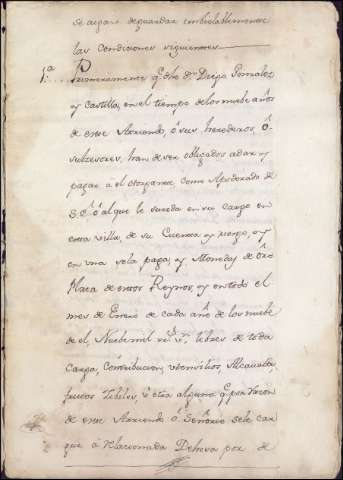 se acpara deguardar imbiolablemente
las Condiciones siguientes
1.ª Primeramente q.e dho d.n Diego Gonzalez
y Castilla, en el tiempo de los nuebe años
de este Arriendo, ó sus herederos, ó
subzesores, han de ser obligados a dar y
pagar a el otorgante, como Apoderado de
S. É. ó al que le suceda en su cargo en
esta villa, de su Cuenta y riesgo, y
en una sola paga, y Moneda de Oro
Plata de estos Reynos, y en todo el
mes de Enero de cada año de los nuebe
de el, Nuebe mil r.s v.n, libres de toda
Carga, Contribucion, utensilios, Alcavala,
frutos Zibiles, ú otra alguna q.e por razon
de este Arriendo ó Señorio se le car
gue á relacionada Dehesa por de